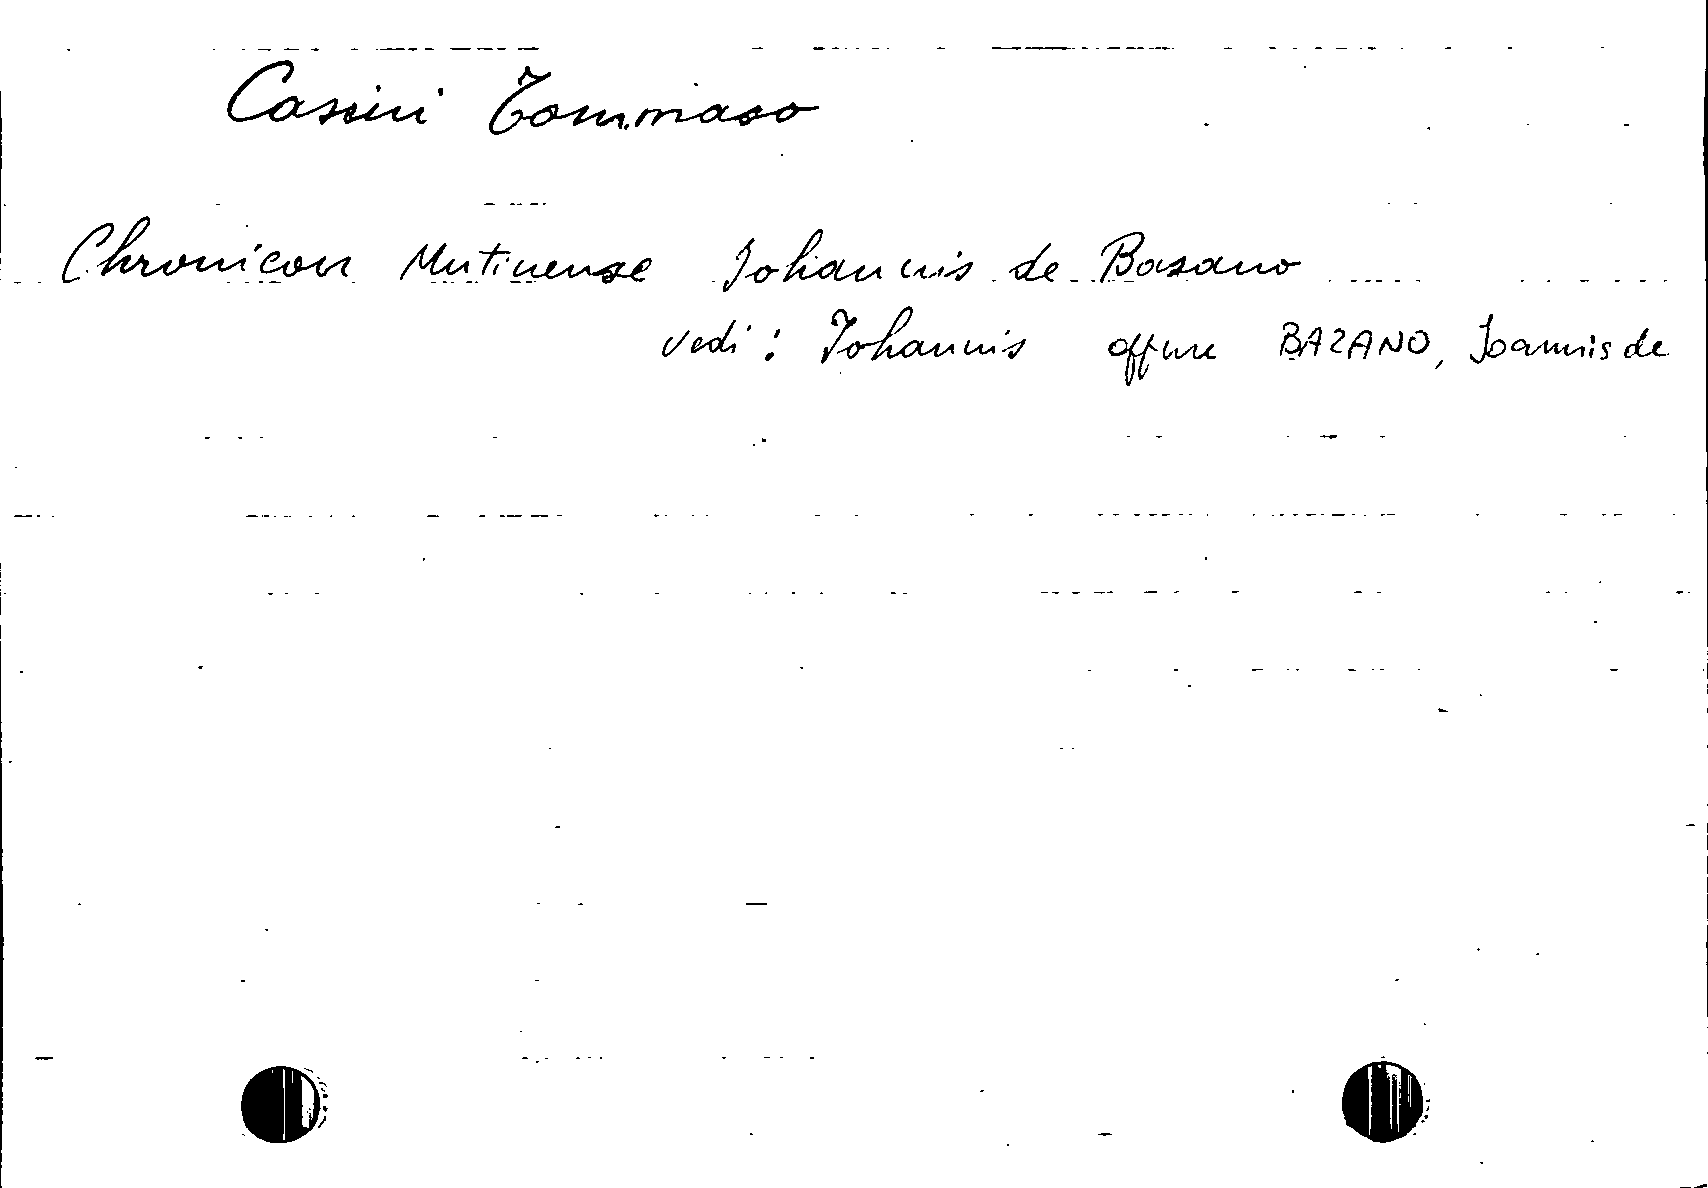 Casini Tommaso
Chronicon Mutinense Johannis de Bazano
vedi: Johannis oppure BAZANO, Joannis de